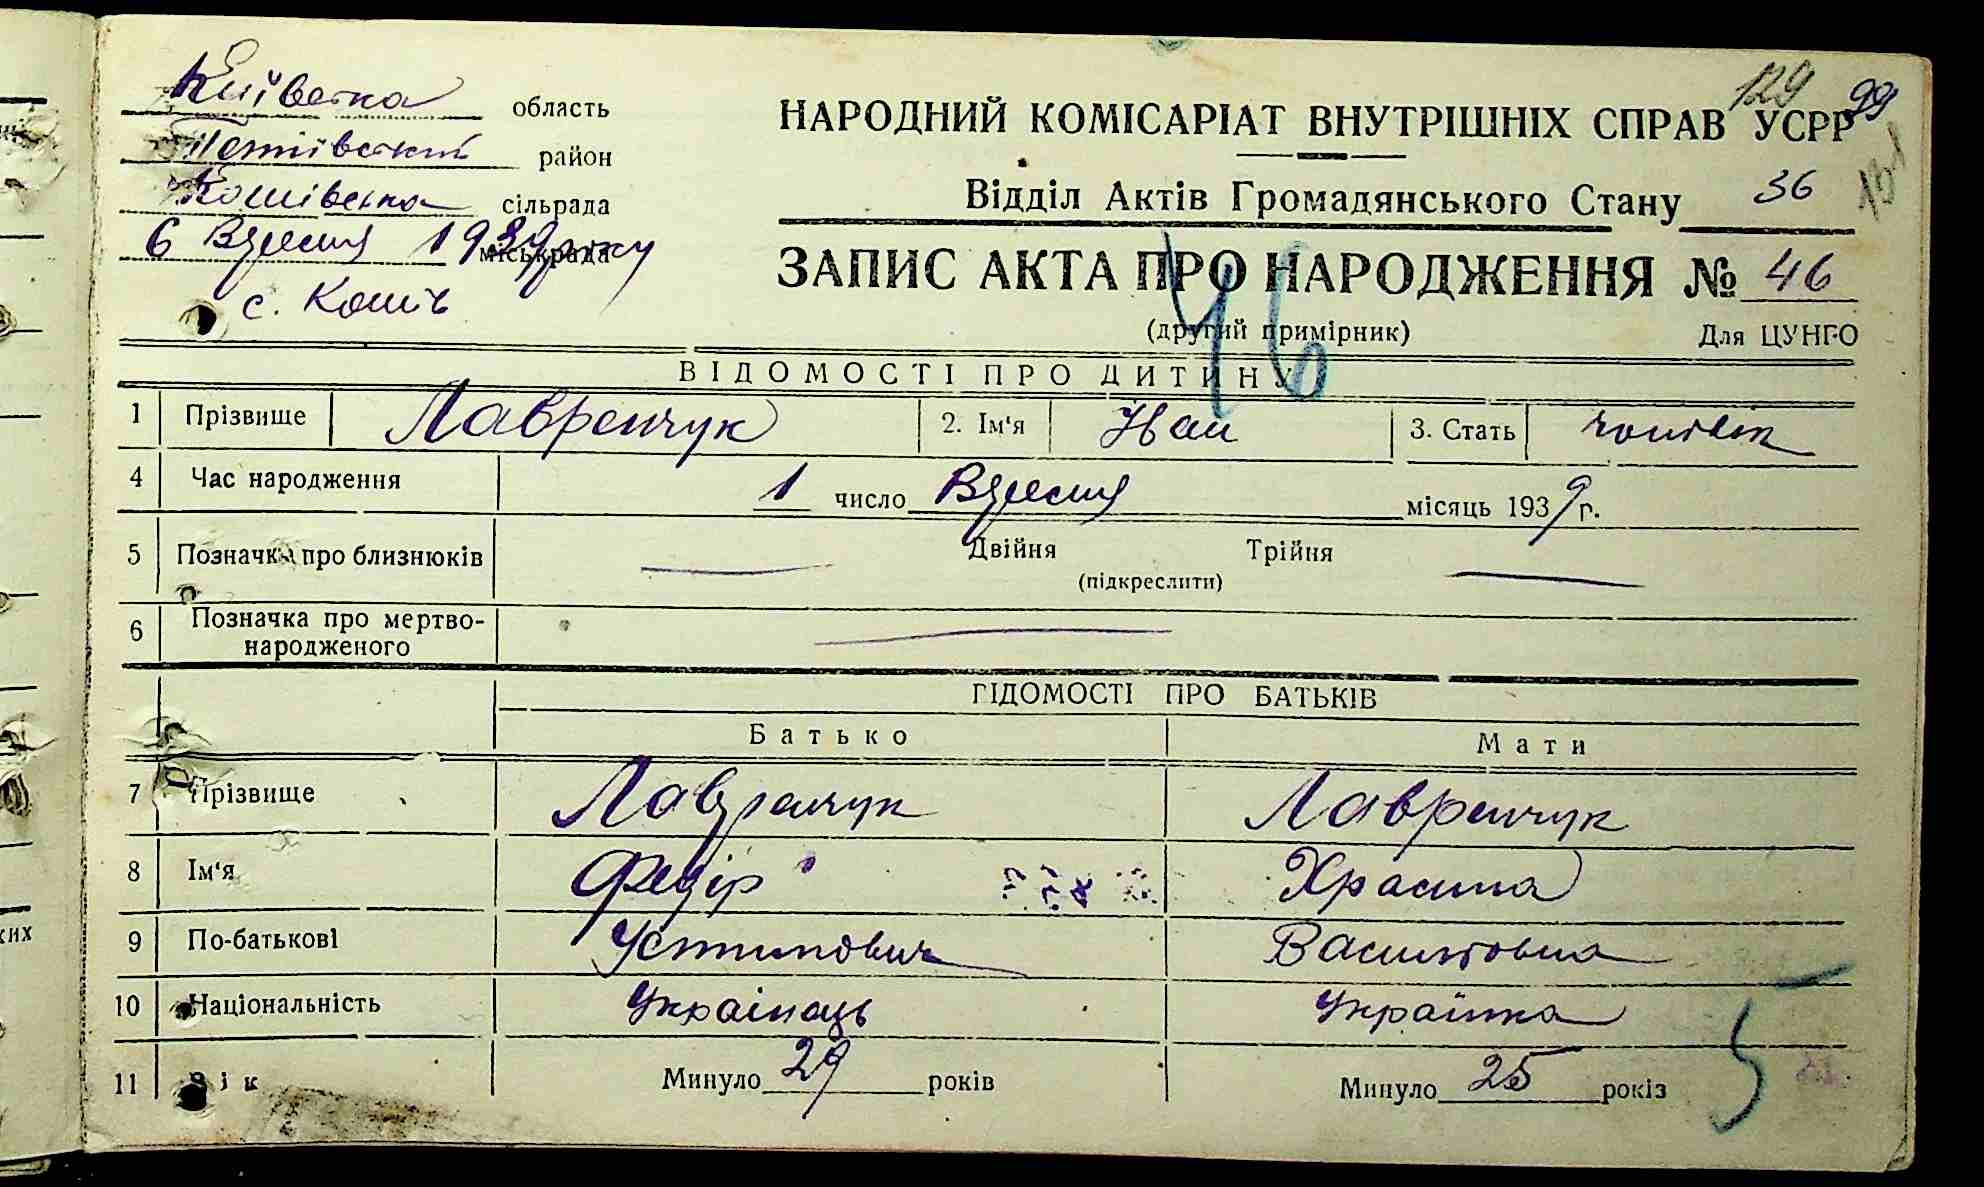 Київська область
Тетіївський район
Кошівська сільрада
6 Вересня 1939 року міськрада
с. Кошів
129 99
131
НАРОДНИЙ КОМІСАРІАТ ВНУТРІШНІХ СПРАВ УСРР
Відділ Актів Громадянського Стану 36
ЗАПИС АКТА ПРО НАРОДЖЕННЯ № 46
46
(другий примірник) Для ЦУНГО
ВІДОМОСТІ ПРО ДИТИНУ
1 Прізвище Лавренчук 2. Ім'я Іван 3. Стать чоловік
4 Час народження 1 число Вересня місяць 1939 г.
5 Позначка про близнюків Двійня Трійня
(підкреслити)
6 Позначка про мертво-
народженого
ГІДОМОСТІ ПРО БАТЬКІВ
Батько Мати
7 Прізвище Лавренчук Лавренчук
8 Ім'я Федір Храсина
9 По-батькові Устимович Василівна
10 Національність Українець Українка
11 Вік Минуло 29 років Минуло 25 рокіз
5